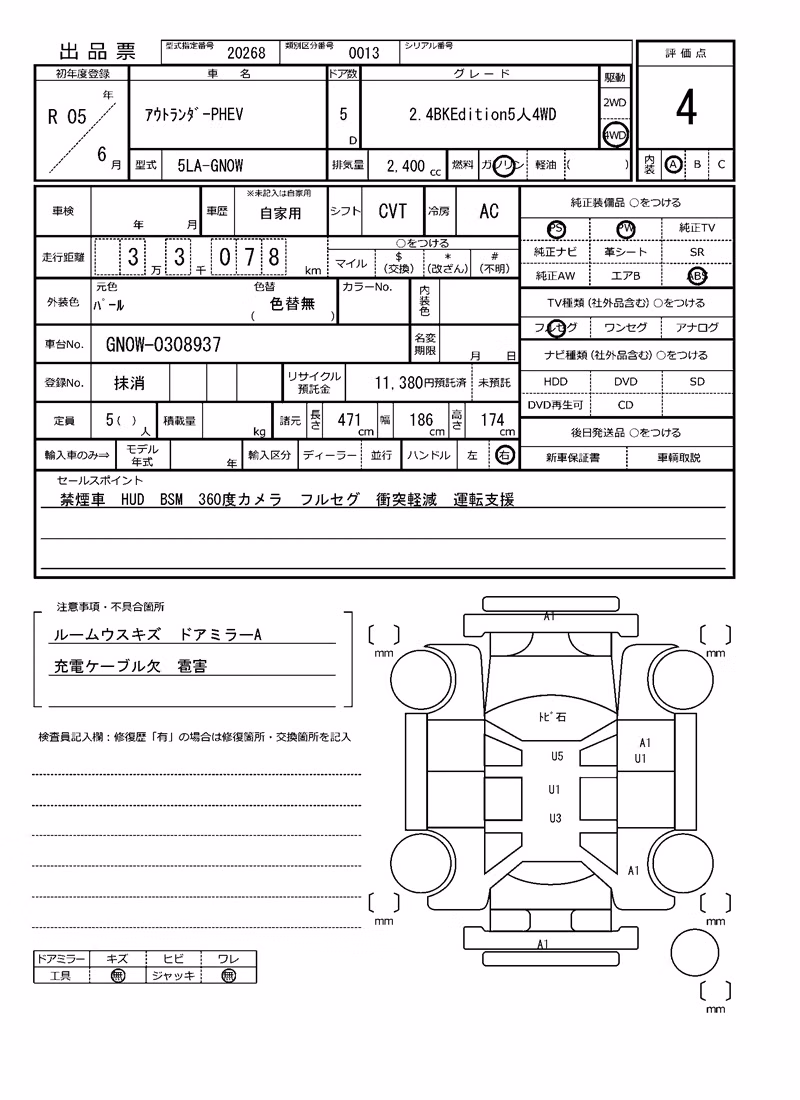 出品票 型式指定番号 20268 類別区分番号 0013 シリアル番号
評価点
4
内装 A B C
初年度登録 車名 ドア数 グレード 駆動
R 05 年 6 月 アウトランダ-PHEV 5 D 2.4BKEdition5人4WD 2WD 4WD
型式 5LA-GN0W 排気量 2,400 cc 燃料 ガソリン 軽油 ( )
車検 年 月 車歴 ※未記入は自家用 自家用 シフト CVT 冷房 AC
走行距離 3 万 3 千 0 7 8 km ○をつける
マイル $(交換) *(改ざん) #(不明)
外装色 元色 パール 色替 ( 色替無 ) カラーNo. 内装色
車台No. GN0W-0308937 名変期限 月 日
登録No. 抹消 リサイクル預託金 11,380円預託済 未預託
定員 5( ) 人 積載量 kg 諸元 長さ 471 cm 幅 186 cm 高さ 174 cm
輸入車のみ⇒ モデル年式 年 輸入区分 ディーラー 並行 ハンドル 左 右
純正装備品 ○をつける
PS PW 純正TV
純正ナビ 革シート SR
純正AW エアB ABS
TV種類 (社外品含む) ○をつける
フルセグ ワンセグ アナログ
ナビ種類 (社外品含む) ○をつける
HDD DVD SD
DVD再生可 CD
後日発送品 ○をつける
新車保証書 車輌取説
セールスポイント
禁煙車 HUD BSM 360度カメラ フルセグ 衝突軽減 運転支援
注意事項・不具合箇所
ルームウスキズ ドアミラーA
充電ケーブル欠 雹害
検査員記入欄：修復歴「有」の場合は修復箇所・交換箇所を記入
ドアミラー キズ ヒビ ワレ
工具 無 ジャッキ 無
A1
mm
mm
トビ石
U5
A1
U1
U1
U3
A1
mm
mm
A1
mm